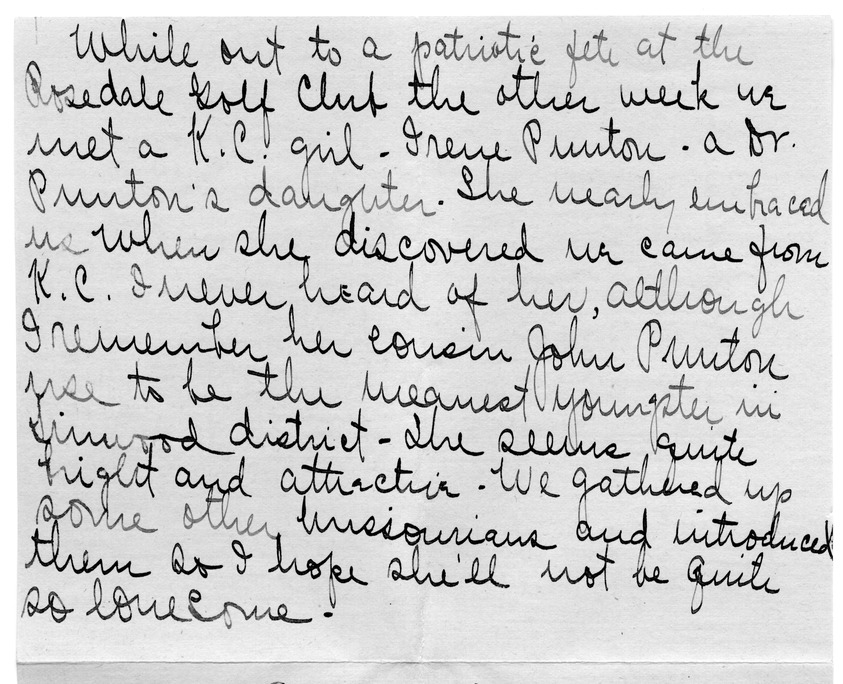 While out to a patriotic fete at the
Rosedale Golf Club the other week we
met a K.C. girl - Irene Punton - a Dr.
Punton's daughter. She nearly embraced
us when she discovered we came from
K.C. I never heard of her, although
I remember her cousin John Punton
use to be the meanest youngster in
Linwood district - She seems quite
bright and attractive - We gathered up
some other missourians and introduced
them so I hope she'll not be quite
so lonecome -